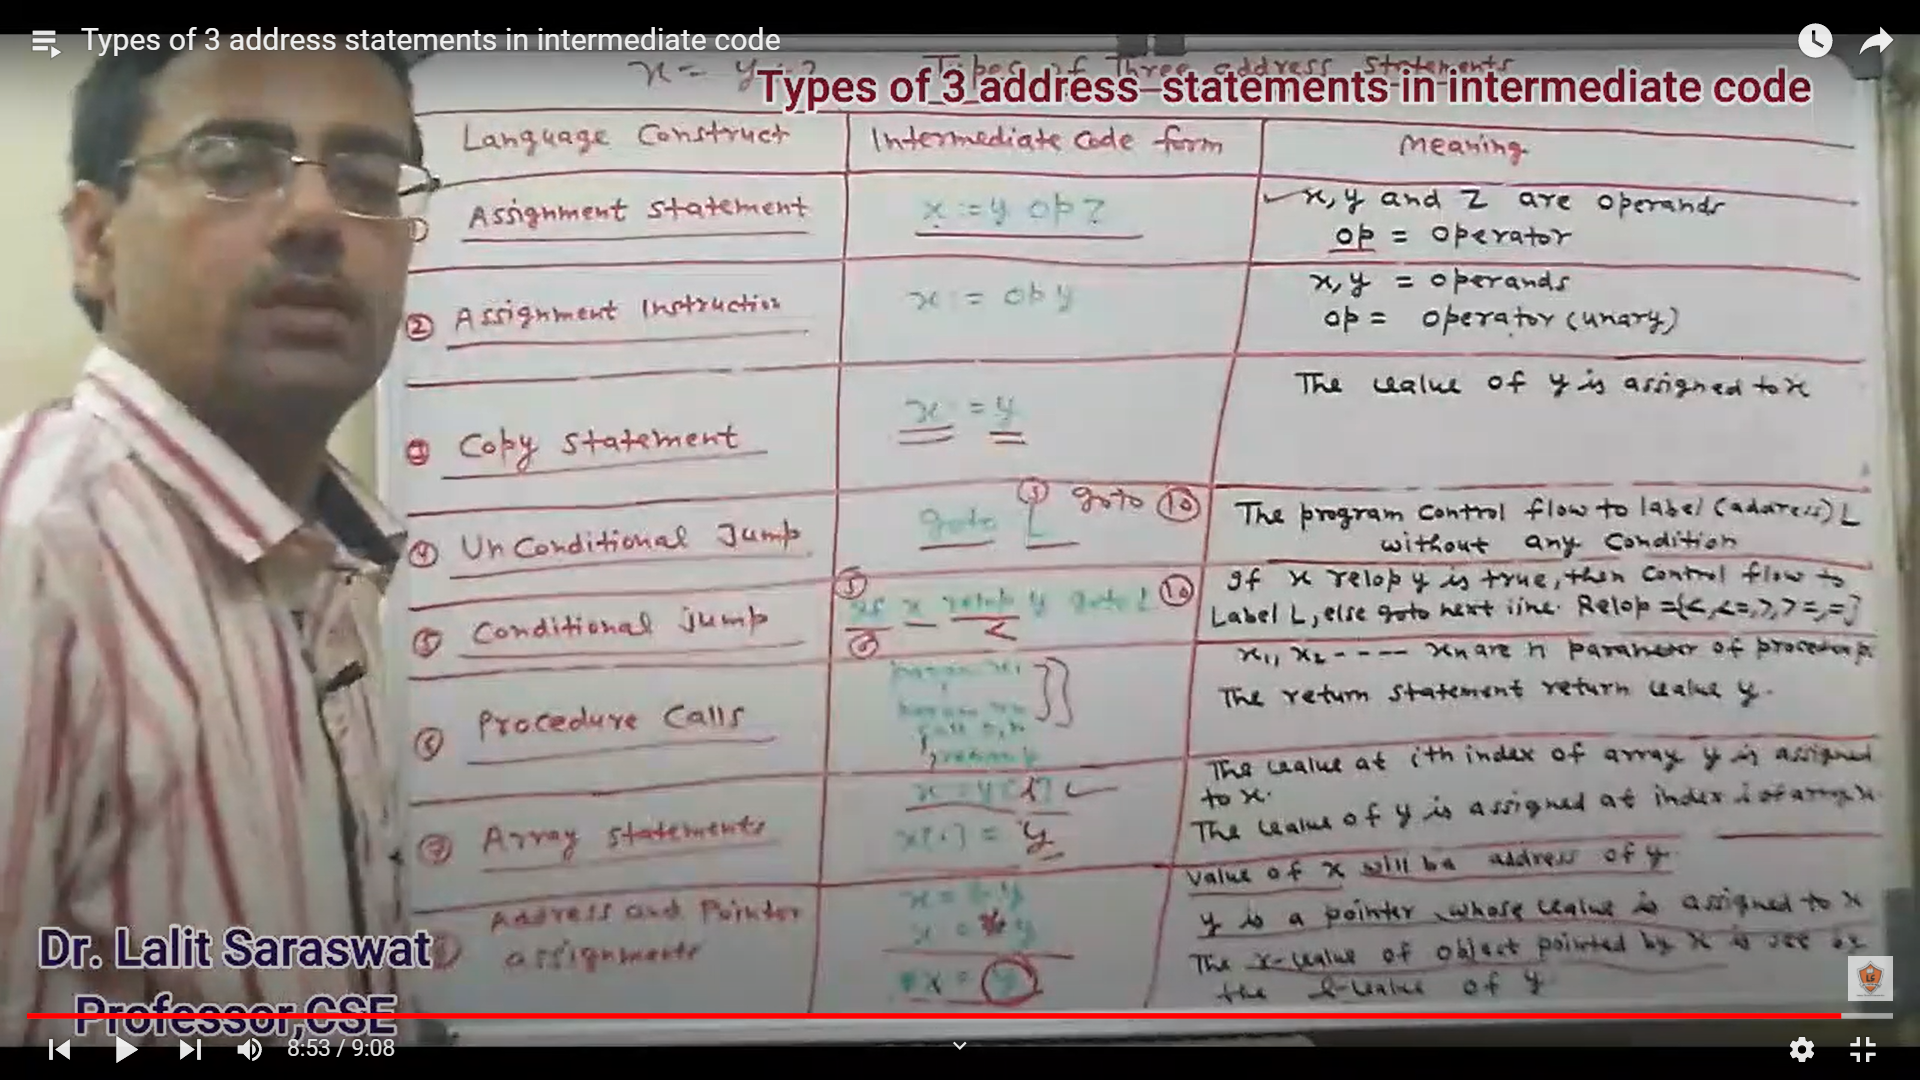 Types of 3 address statements in intermediate code
Types of Three address Statements
Types of 3 address statements in intermediate code
Language Construct
Intermediate Code form
Meaning
① Assignment Statement
x := y op z
x, y and z are operands
op = operator
② Assignment Instruction
x := op y
x, y = operands
op = operator (unary)
③ Copy Statement
x := y
The value of y is assigned to x
④ UnConditional Jump
goto L
③ goto ⑩
The program control flow to label (address) L
without any Condition
⑤ Conditional Jump
⑤
x relop y goto L ⑩
<
⑥
If x relop y is true, then Control flow to
Label L, else goto next line. Relop = {<, <=, >, >=, =}
⑥ Procedure Calls
x1, x2 ---- xn are n parameter of
The return statement return value y.
⑦ Array Statements
x = y[i]
x[i] = y
The value at ith index of array y is assigned
to x.
The value of y is assigned at index i of array x.
Address and Pointer
assignments
x = &y
x = *y
*x = y
Value of x will be address of y
y is a pointer whose value is assigned to x
The r-value of object pointed by x is set by
the l-value of y
Dr. Lalit Saraswat
Professor,CSE
8:53 / 9:08